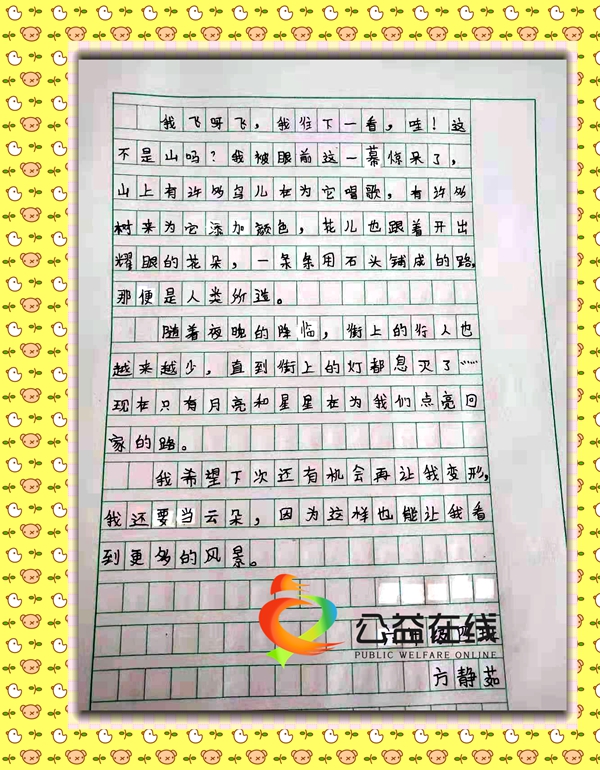 我飞呀飞，我往下一看，哇！这
不是山吗？我被眼前这一幕惊呆了，
山上有许多鸟儿在为它唱歌，有许多
树来为它添加颜色，花儿也跟着开出
耀眼的花朵，一条条用石头铺成的路，
那便是人类所造。
随着夜晚的降临，街上的行人也
越来越少，直到街上的灯都息灭了……
现在只有月亮和星星在为我们点亮回
家的路。
我希望下次还有机会再让我变形，
我还要当云朵，因为这样也能让我看
到更多的风景。
公益在线
PUBLIC WELFARE ONLINE
方静茹